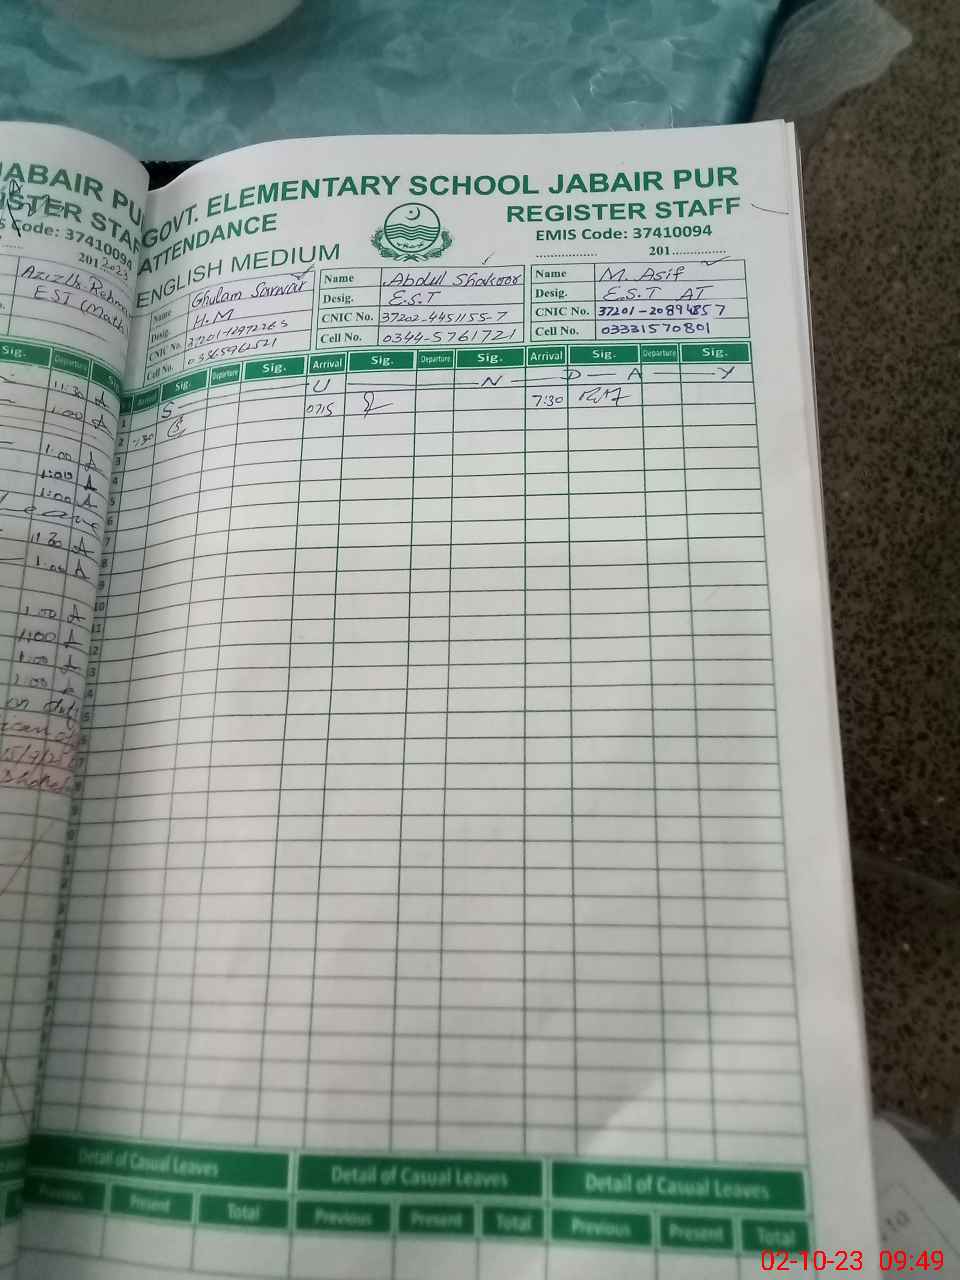 JABAIR PU
ISTER STAF
S Code: 37410094
2012023
Azizur Rehma
EST (Math
Sig. Departure Sig.
11:30
1:00
1:00
1:00
1:00
Leave
11:30
1:00
1:00
1:00
1:00
1:00
on duty
GOVT. ELEMENTARY SCHOOL JABAIR PUR
ATTENDANCE REGISTER STAFF
EMIS Code: 37410094
ENGLISH MEDIUM ................ 201..............
Name Ghulam Sarwar
Desig. H.M
CNIC No.
Cell No.
Name Abdul Shakoor
Desig. E.S.T
CNIC No. 37202-4451155-7
Cell No. 0344-5761721
Name M. Asif
Desig. E.S.T AT
CNIC No. 37201-20894857
Cell No. 03331570801
Arrival Sig. Departure Sig. Arrival Sig. Departure Sig. Arrival Sig. Departure Sig.
1 S U N D A Y
2 7:30 0715 7:30
3
4
5
6
7
8
9
10
11
12
Detail of Casual Leaves Detail of Casual Leaves Detail of Casual Leaves
Previous Present Total Previous Present Total Previous Present Total
02-10-23 09:49